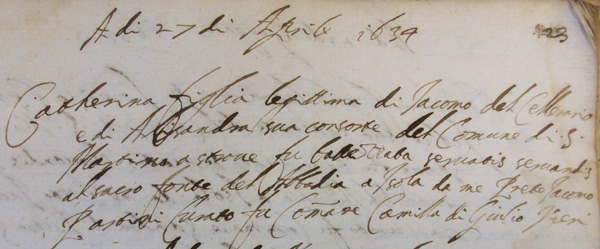 A di 27 di Aprile 1634
23
Catherina figlia legittima di Jacomo del
e di Alessandra sua consorte del Comune di S.
Martino a strove fu battezzata servatis servandis
al sacro fonte del Abbadia a Isola da me Prete Jacomo
Curato fu Comare Camilla di Giulio